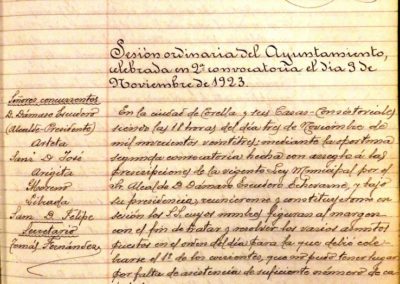 Sesión ordinaria del Ayuntamiento,
celebrada en 2ª convocatoria el día 3 de
Noviembre de 1923.
Señores concurrentes
D. Dámaso Escudero
(Alcalde-Presidente)
Arteta
Sanz D. José
Argita
Moreno
Librada
Sanz D. Felipe
Secretario
Tomás Fernández
En la ciudad de Corella y sus Casas-Consistoriales
siendo las 11 horas del día tres de Noviembre de
mil novecientos veintitres; mediante la oportuna
segunda convocatoria hecha con arreglo á las
prescripciones de la vigente Ley Municipal por el
Sr. Alcalde D. Dámaso Escudero Echevarne, y bajo
su presidencia, reuniéronse y constituyéronse en
sesión los SS. cuyos nombres figuran al margen
con el fin de tratar y resolver los varios asuntos
puestos en el orden del día para la que debió cele-
brarse el 1º de los corrientes, que no pudo tener lugar
por falta de asistencia de suficiente número de ca